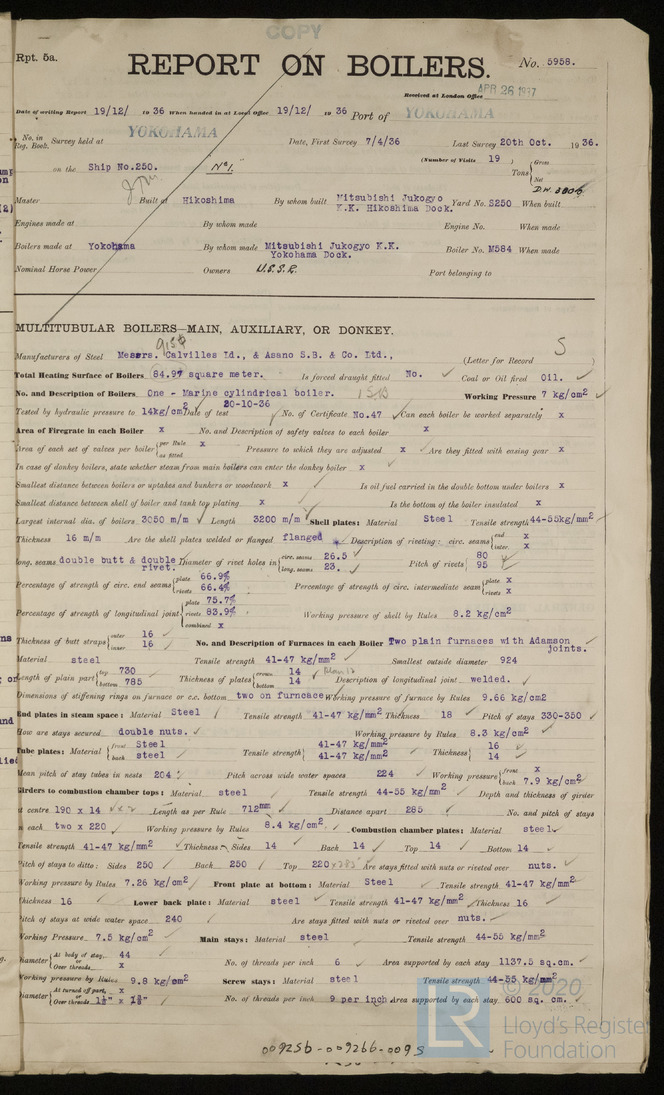 COPY
Rpt. 5a.
REPORT ON BOILERS.
No. 5958.
Received at London Office APR 26 1937
Date of writing Report 19/12/ 1936 When handed in at Local Office 19/12/ 1936 Port of YOKOHAMA
No. in Reg. Book. Survey held at YOKOHAMA Date, First Survey 7/4/36 Last Survey 20th Oct. 1936.
(Number of Visits 19 )
on the Ship No.250. No 1. Tons { Gross Net
D.W. 3806
Master Built at Hikoshima By whom built Mitsubishi Jukogyo K.K. Hikoshima Dock. Yard No. S250 When built
Engines made at By whom made Engine No. When made
Boilers made at Yokohama By whom made Mitsubishi Jukogyo K.K. Yokohama Dock. Boiler No. M584 When made
Nominal Horse Power Owners U.S.S.R. Port belonging to
MULTITUBULAR BOILERS—MAIN, AUXILIARY, OR DONKEY.
Manufacturers of Steel Messrs. Calvilles Ld., & Asano S.B. & Co. Ltd., (Letter for Record S )
Total Heating Surface of Boilers 84.97 square meter. Is forced draught fitted No. Coal or Oil fired Oil.
No. and Description of Boilers One - Marine cylindrical boiler. Working Pressure 7 kg/cm2
Tested by hydraulic pressure to 14kg/cm2 Date of test 20-10-36 No. of Certificate No.47 Can each boiler be worked separately x
Area of Firegrate in each Boiler x No. and Description of safety valves to each boiler x
Area of each set of valves per boiler { per Rule x as fitted Pressure to which they are adjusted x Are they fitted with easing gear x
In case of donkey boilers, state whether steam from main boilers can enter the donkey boiler x
Smallest distance between boilers or uptakes and bunkers or woodwork x Is oil fuel carried in the double bottom under boilers x
Smallest distance between shell of boiler and tank top plating x Is the bottom of the boiler insulated x
Largest internal dia. of boilers 3050 m/m Length 3200 m/m Shell plates: Material Steel Tensile strength 44-55kg/mm2
Thickness 16 m/m Are the shell plates welded or flanged flanged Description of riveting: circ. seams { end x inter. x
long. seams double butt & double rivet. Diameter of rivet holes in { circ. seams 26.5 long. seams 23. Pitch of rivets { 80 95
Percentage of strength of circ. end seams { plate 66.9% rivets 66.4% Percentage of strength of circ. intermediate seam { plate x rivets x
Percentage of strength of longitudinal joint { plate 75.7% rivets 83.9% combined x Working pressure of shell by Rules 8.2 kg/cm2
Thickness of butt straps { outer 16 inner 16 No. and Description of Furnaces in each Boiler Two plain furnaces with Adamson joints.
Material steel Tensile strength 41-47 kg/mm2 Smallest outside diameter 924
Length of plain part { top 730 bottom 785 Thickness of plates { crown 14 bottom 14 Description of longitudinal joint welded.
Dimensions of stiffening rings on furnace or c.c. bottom two on furnace Working pressure of furnace by Rules 9.66 kg/cm2
End plates in steam space: Material Steel Tensile strength 41-47 kg/mm2 Thickness 18 Pitch of stays 330-350
How are stays secured double nuts. Working pressure by Rules 8.3 kg/cm2
Tube plates: Material { front Steel back steel Tensile strength { 41-47 kg/mm2 41-47 kg/mm2 Thickness { 16 14
Mean pitch of stay tubes in nests 204 Pitch across wide water spaces 224 Working pressure { front x back 7.9 kg/cm2
Girders to combustion chamber tops: Material steel Tensile strength 44-55 kg/mm2 Depth and thickness of girder
at centre 190 x 14 Length as per Rule 712mm Distance apart 285 No. and pitch of stays
in each two x 220 Working pressure by Rules 8.4 kg/cm2 Combustion chamber plates: Material steel
Tensile strength 41-47 kg/mm2 Thickness Sides 14 Back 14 Top 14 Bottom 14
Pitch of stays to ditto: Sides 250 Back 250 Top 220 x 285 Are stays fitted with nuts or riveted over nuts.
Working pressure by Rules 7.26 kg/cm2 Front plate at bottom: Material Steel Tensile strength 41-47 kg/mm2
Thickness 16 Lower back plate: Material steel Tensile strength 41-47 kg/mm2 Thickness 16
Pitch of stays at wide water space 240 Are stays fitted with nuts or riveted over nuts.
Working Pressure 7.5 kg/cm2 Main stays: Material steel Tensile strength 44-55 kg/mm2
Diameter { At body of stay, 44 or Over threads x No. of threads per inch 6 Area supported by each stay 1137.5 sq.cm.
Working pressure by Rules 9.8 kg/cm2 Screw stays: Material steel Tensile strength 44-55 kg/mm2
Diameter { At turned off part, x or Over threads No. of threads per inch 9 per inch Area supported by each stay 600 sq. cm.
© 2020
LR Lloyd's Register Foundation
009256-009266-0095